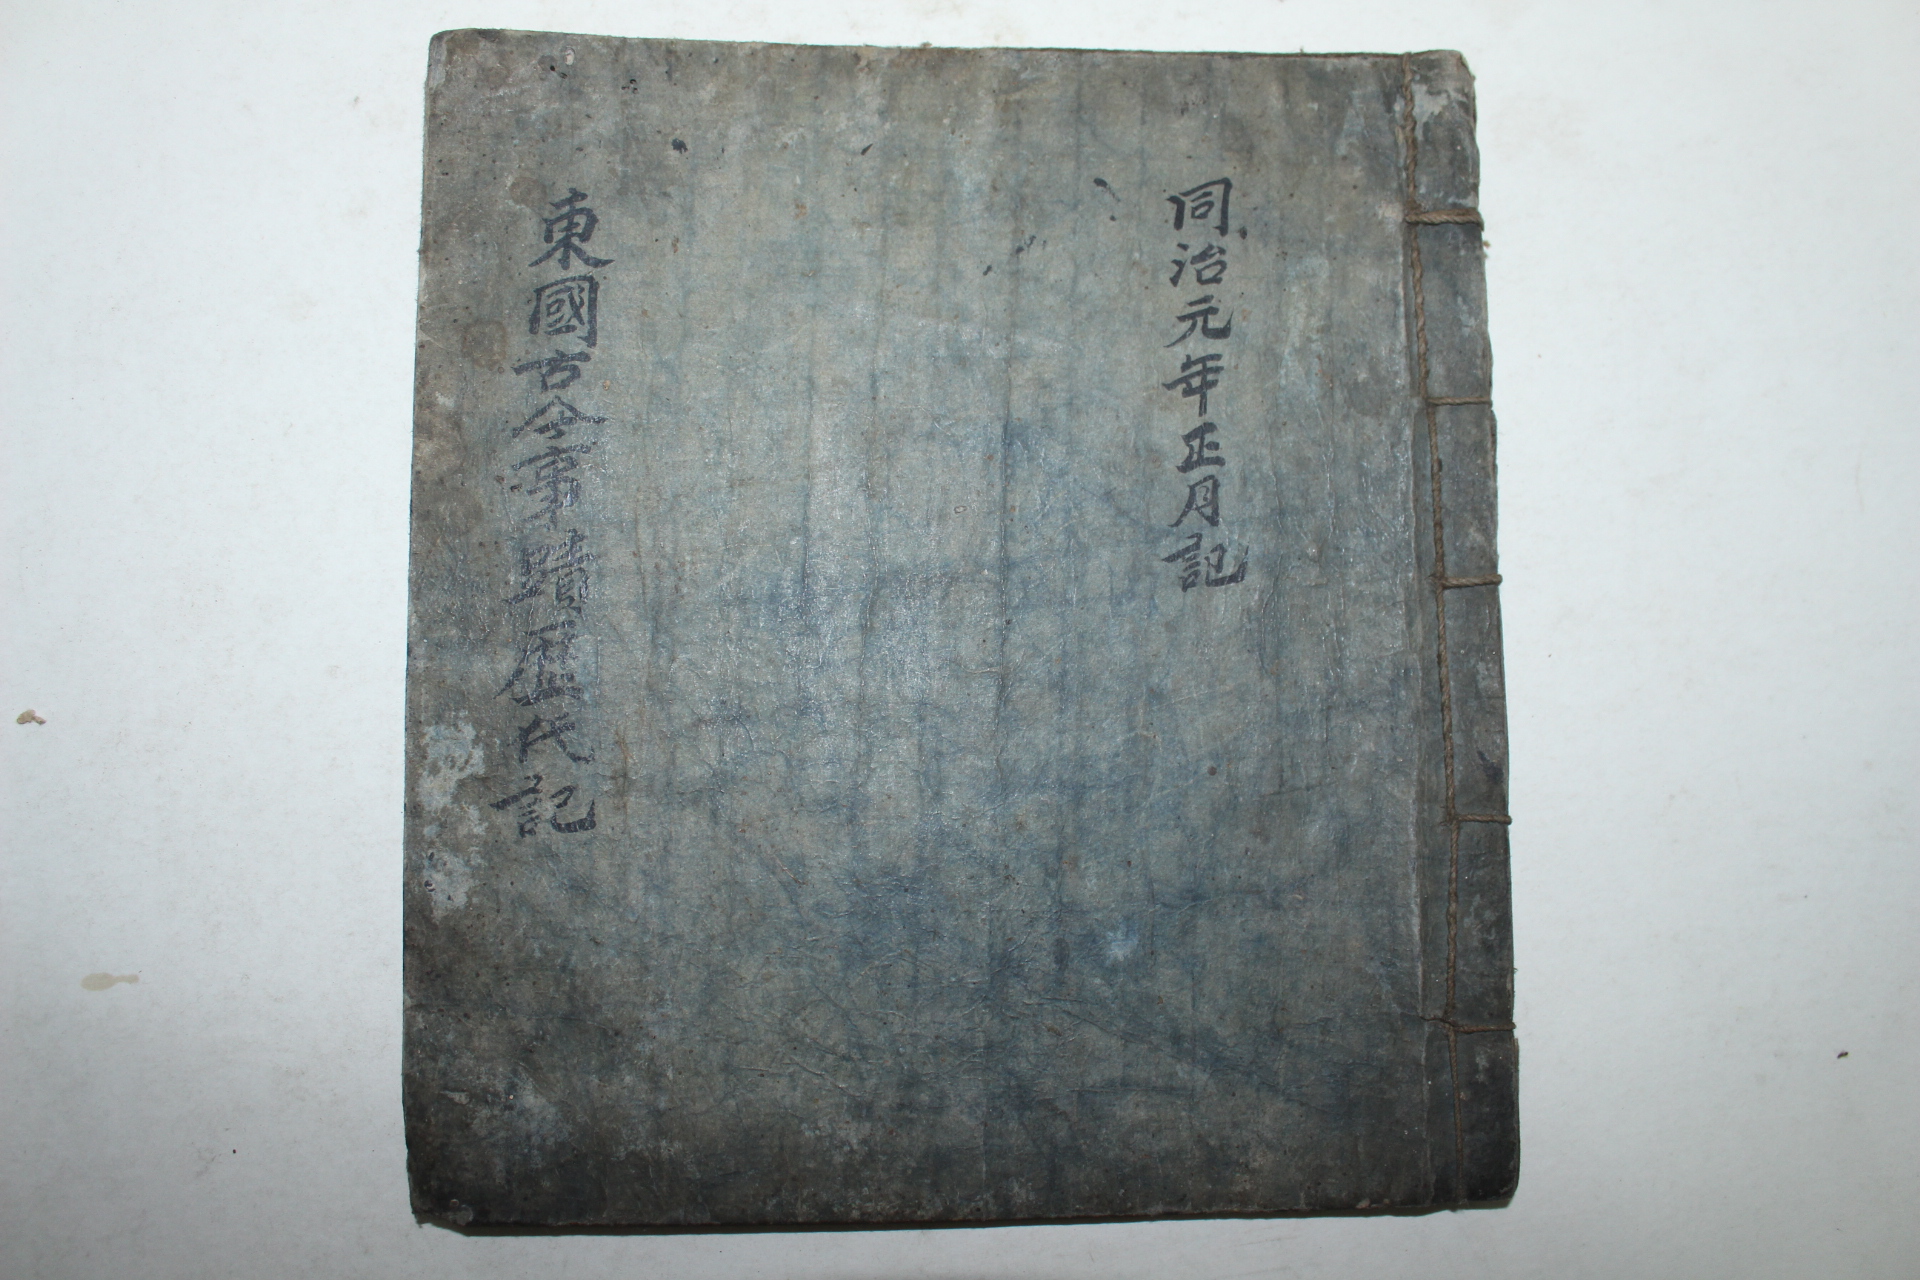 同治元年正月記
東國古今事蹟歷氏記